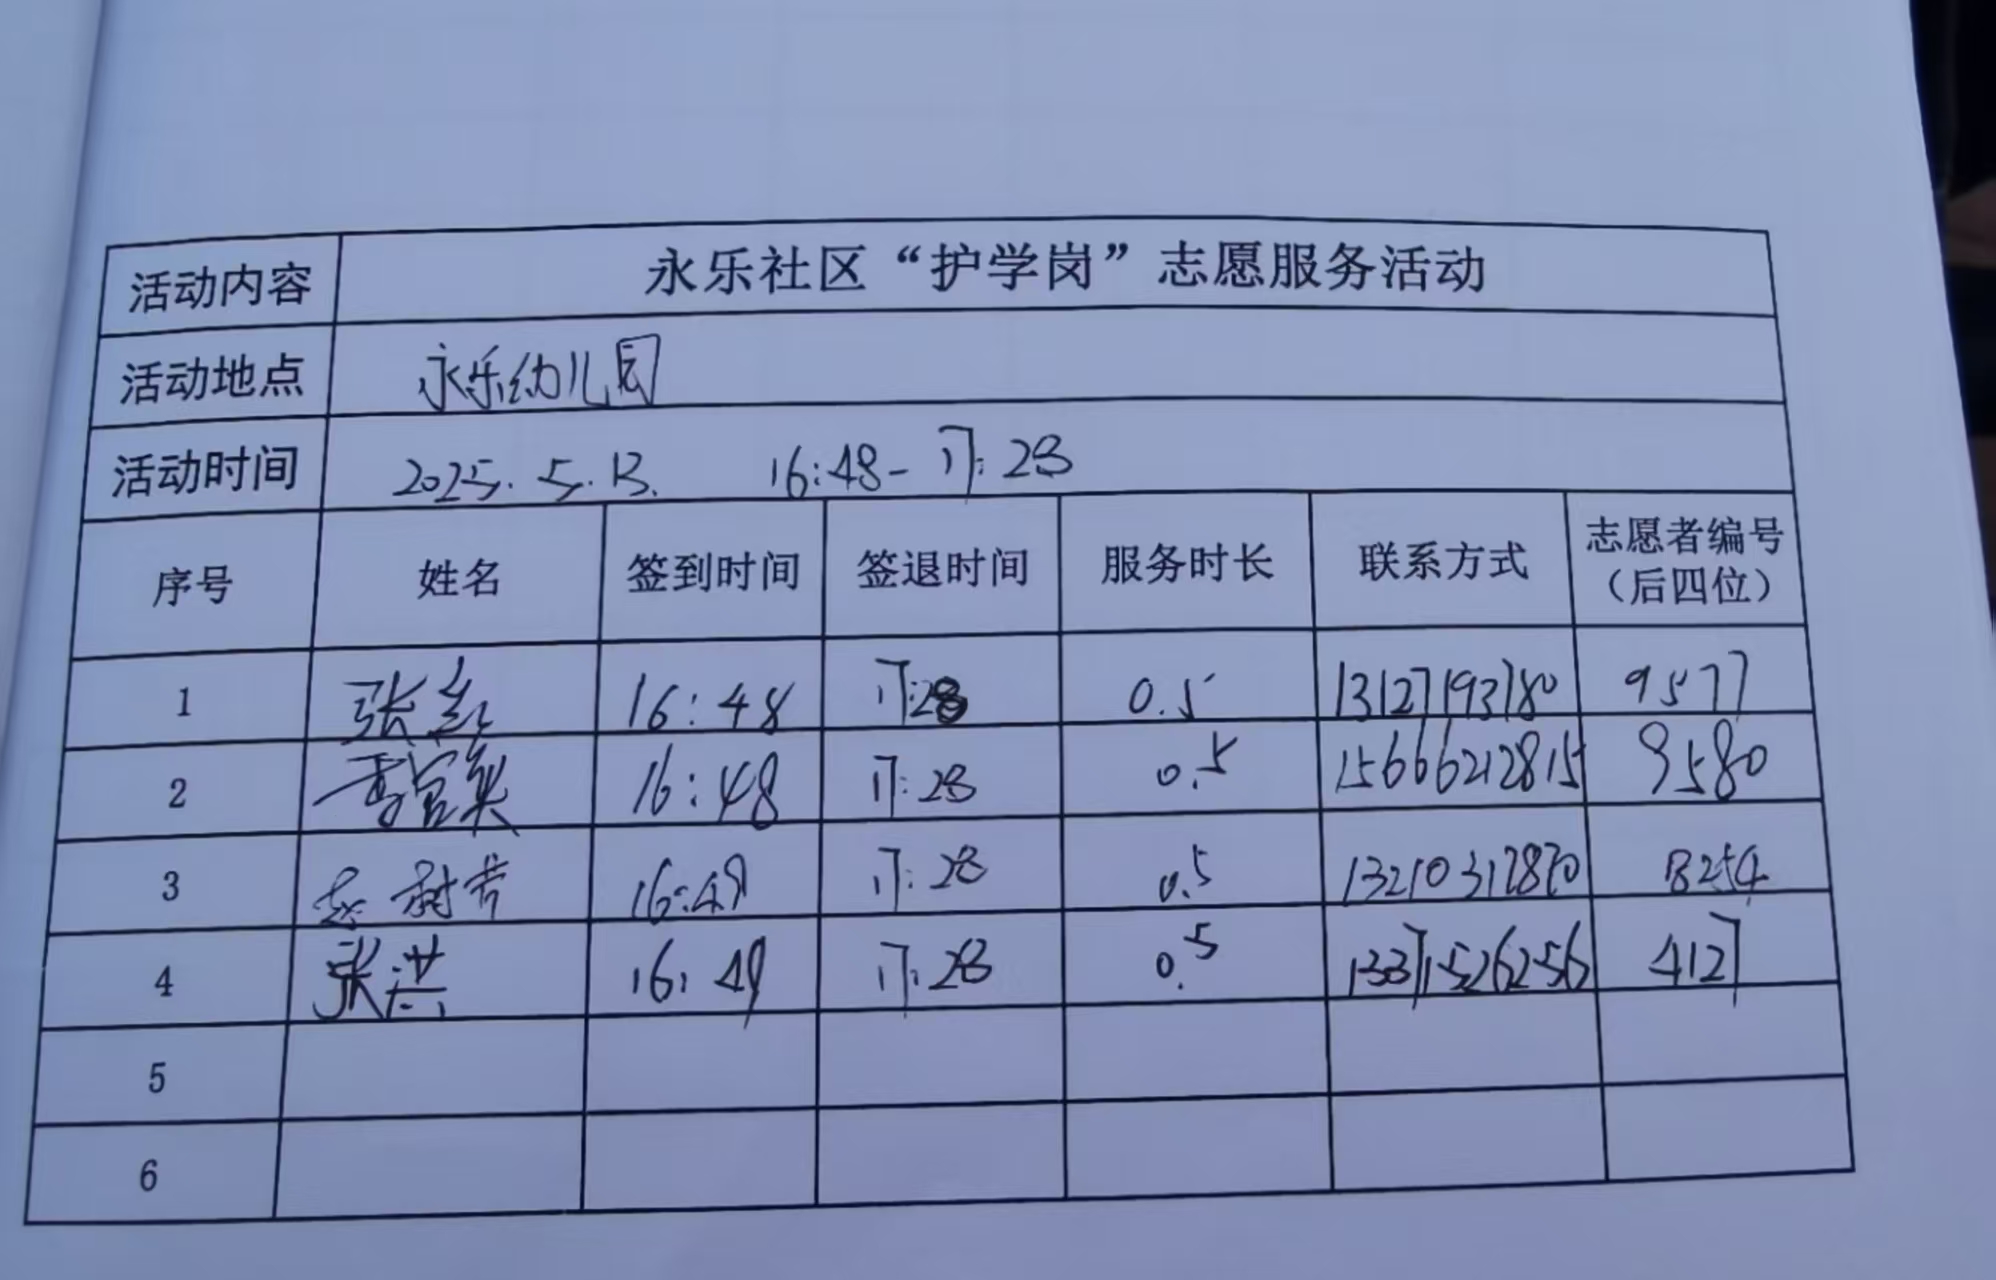 活动内容 永乐社区“护学岗”志愿服务活动
活动地点 永乐幼儿园
活动时间 2025.5.13. 16:48-17:28
序号 姓名 签到时间 签退时间 服务时长 联系方式 志愿者编号（后四位）
1 张 16:48 17:28 0.5 13127193780 9577
2 16:48 17:28 0.5 15666212815 9580
3 赵 16:49 17:28 0.5 13210312870 8254
4 张洪 16:49 17:28 0.5 13371526256 4127
5
6